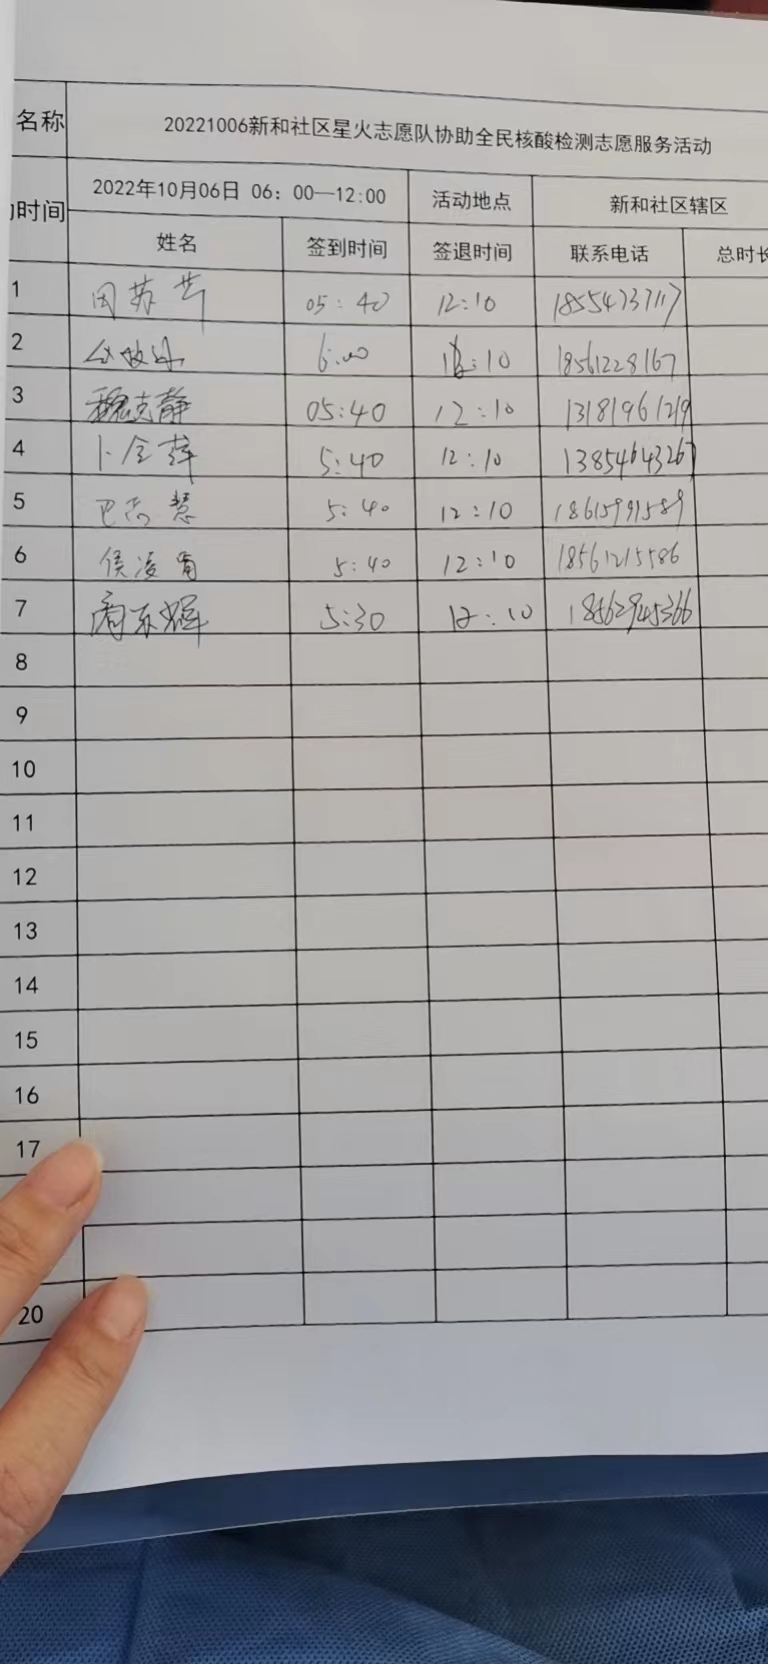 名称 20221006新和社区星火志愿队协助全民核酸检测志愿服务活动
时间 2022年10月06日 06：00—12:00 活动地点 新和社区辖区
姓名 签到时间 签退时间 联系电话 总时长
1 05:40 12:10 18554737117
2 6:00 12:10 18561228167
3 魏克静 05:40 12:10 13181961219
4 卜全萍 5:40 12:10 13854643267
5 巴志慧 5:40 12:10 18615991589
6 侯凌霄 5:40 12:10 18561215586
7 5:30 12:10 18562945366
8
9
10
11
12
13
14
15
16
17
20